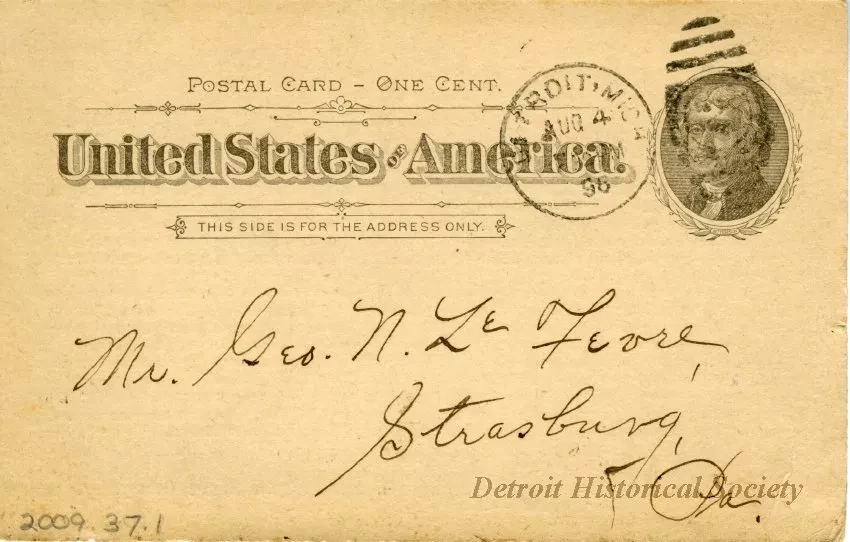 POSTAL CARD – ONE CENT.
United States OF America.
THIS SIDE IS FOR THE ADDRESS ONLY.
DETROIT, MICH
AUG 4
98
Mr. Geo. N. Le Fevre,
Strasburg,
Pa.
Detroit Historical Society
2009.37.1